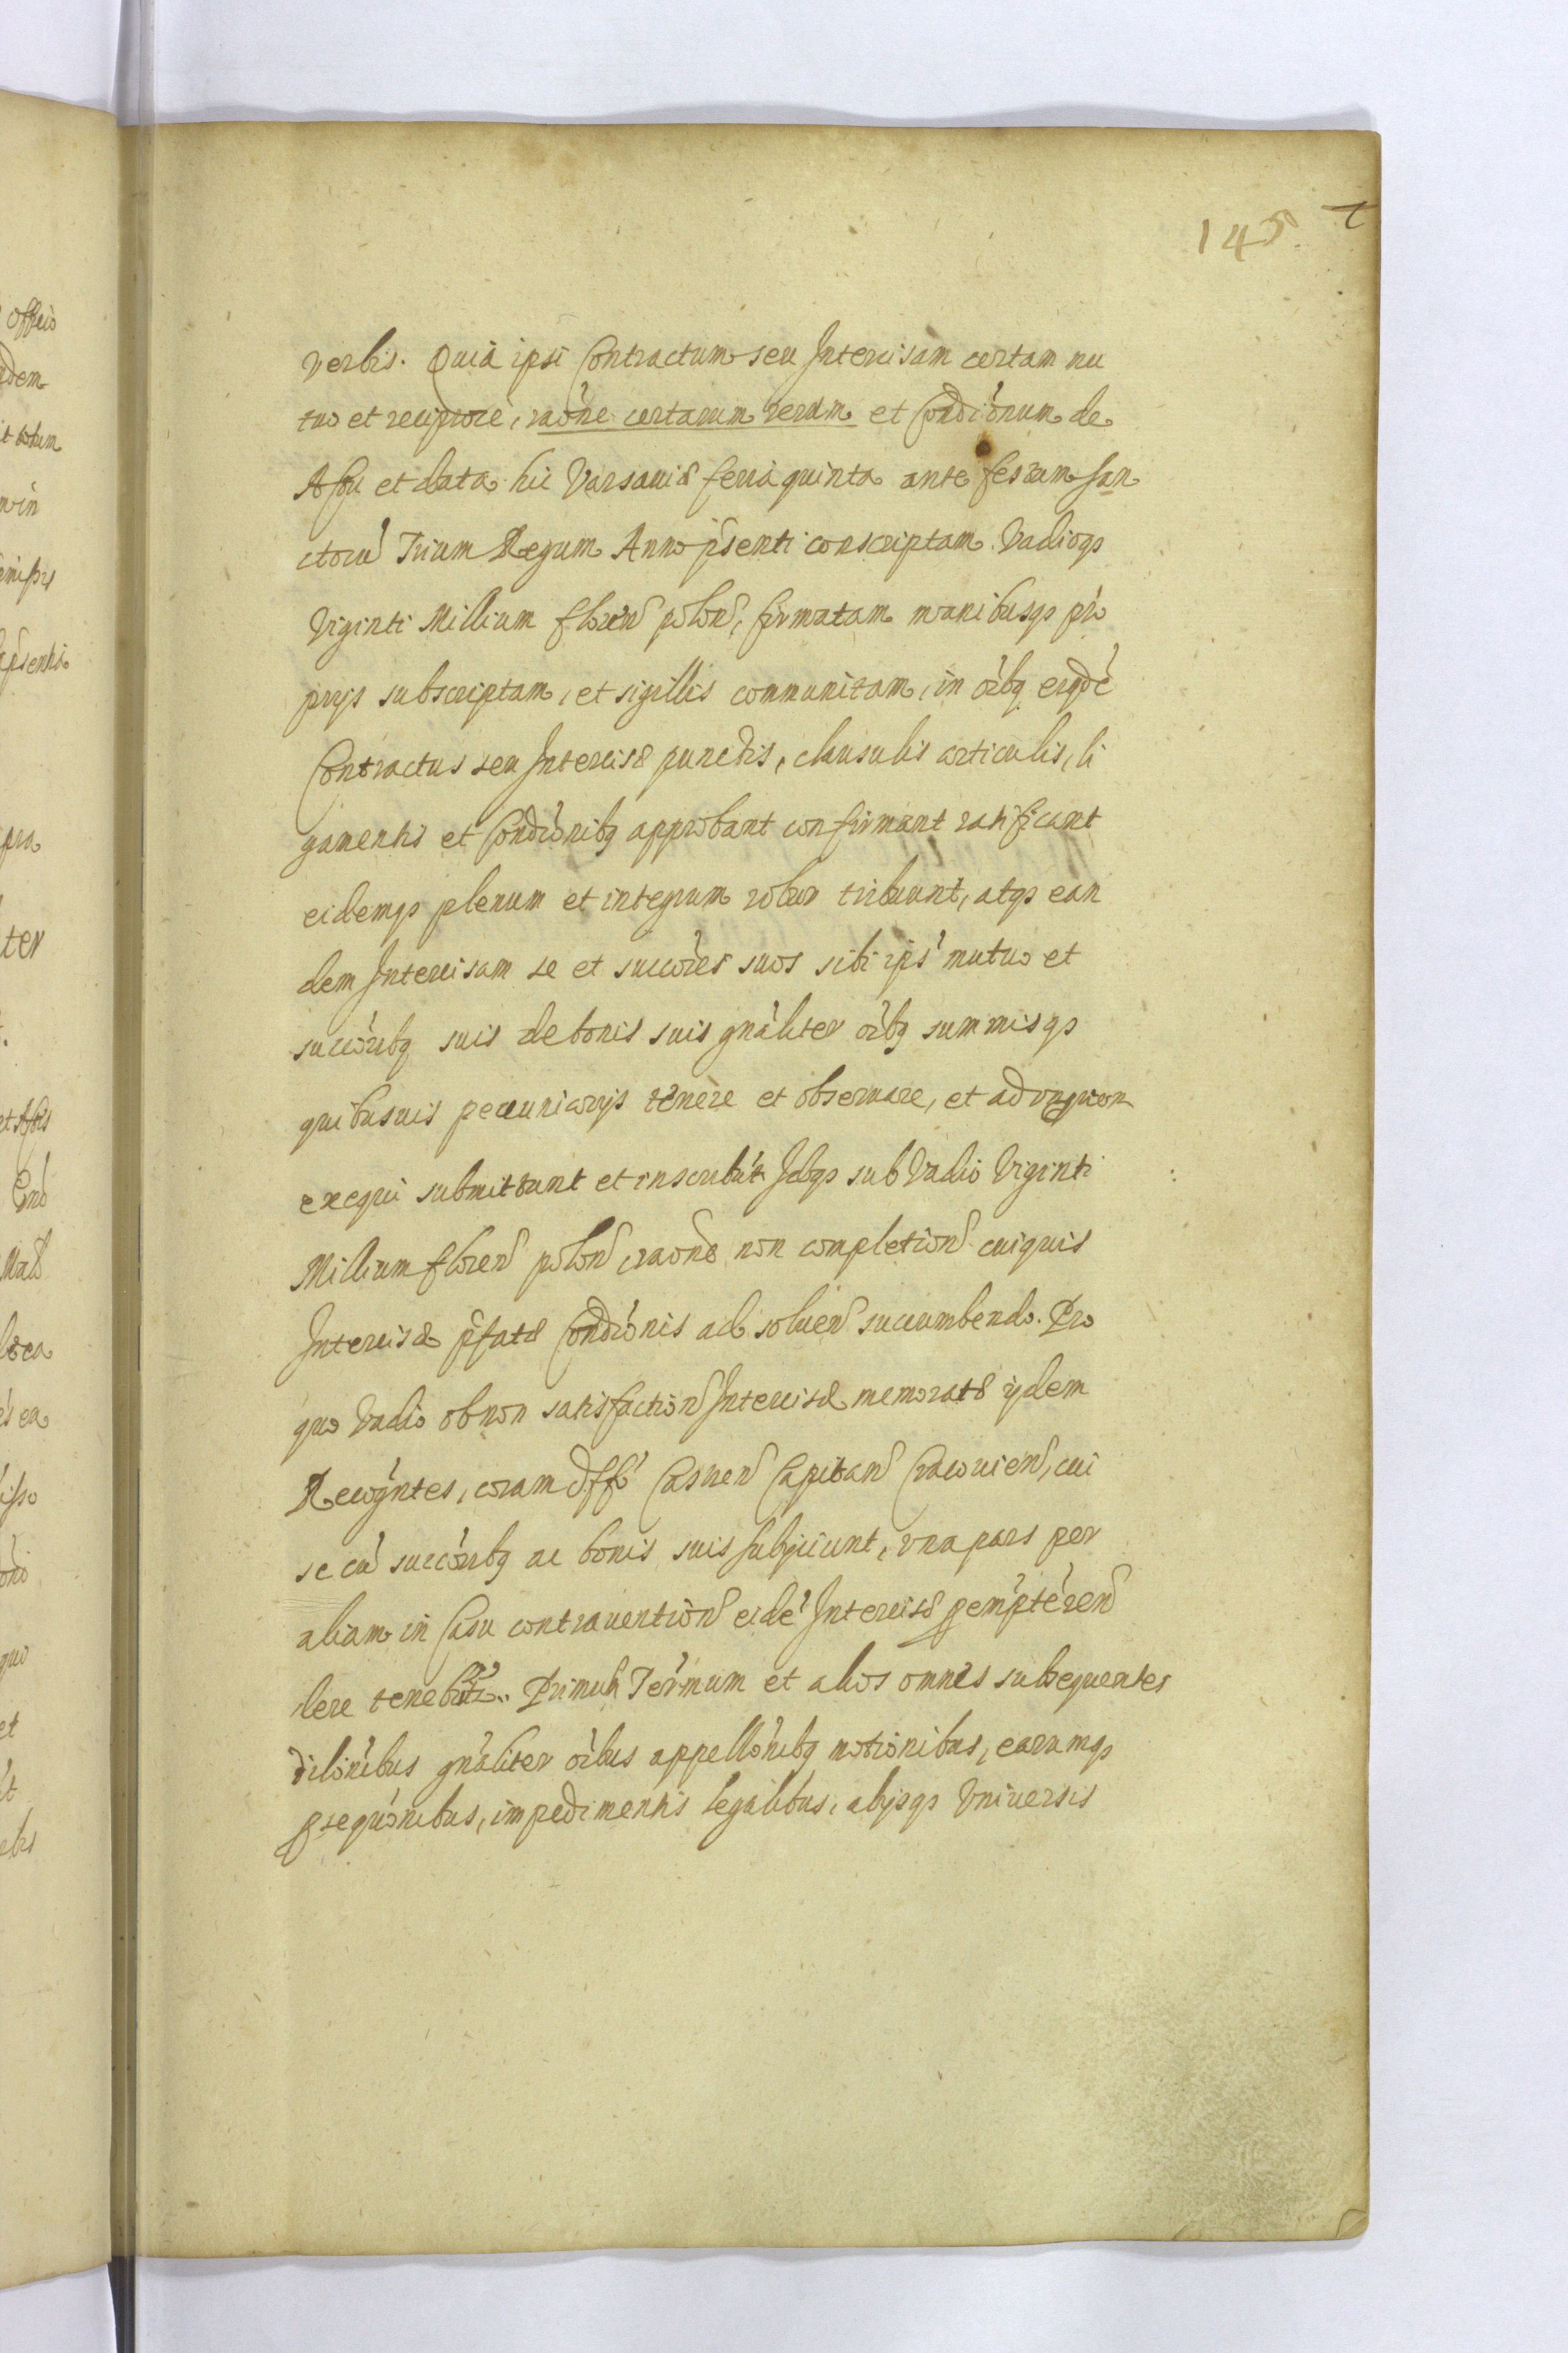 145.
verbis. Quia ipsi Contractum seu Intercisam certam mu
tuo et reciproce, raõne certarum rerum et Condiõnum de
Actu et data hic Varsauiæ feria quinta ante festum San
ctorũ Trium Regum Anno pñsenti conscriptam Vadioqȝ
Viginti Millium floren polon, firmatam manibusqȝ pro
prijs subscriptam, et sigillis communitam, in oĩbq eiusdẽ
Contractus seu Intercisæ punctis, clausulis articulis, li
gamentis et Condiõnibq approbant confirmant ratificant
eidemqȝ plenum et integrum robur tribuunt, atqȝ ean
dem Intercisam se et succõres suos sibi ipsĩ mutuo et
succõribq suis de bonis suis gñaliter oĩbq summisqȝ
quibusuis pecuniarijs tenere et obseruare, et ad unguem
exequi submittunt et inscribũt Idqȝ sub Vadio Viginti
Millium floren polon, raõne non completion cuiquis
Intercisæ pfatæ Condiõnis ad soluen succumbendo. Pro
quo Vadio ob non satisfaction Intercisæ memoratæ ijdem
Recogñtes, coram Offõ Castren Capitan Cracouien, cui
se cũ succõribq ac bonis suis subijciunt, vna pars per
aliam in Casu contrauention eidẽ Intercisæ pemptẽ ren
dere tenebũtur. Primuh Termum et alios omnes subsequentes
dilõnibus gñaliter oĩbus appellõnibq motionibus, earumqȝ
psequõnibus, impedimentis legalibus, alijsqȝ Vniuersis